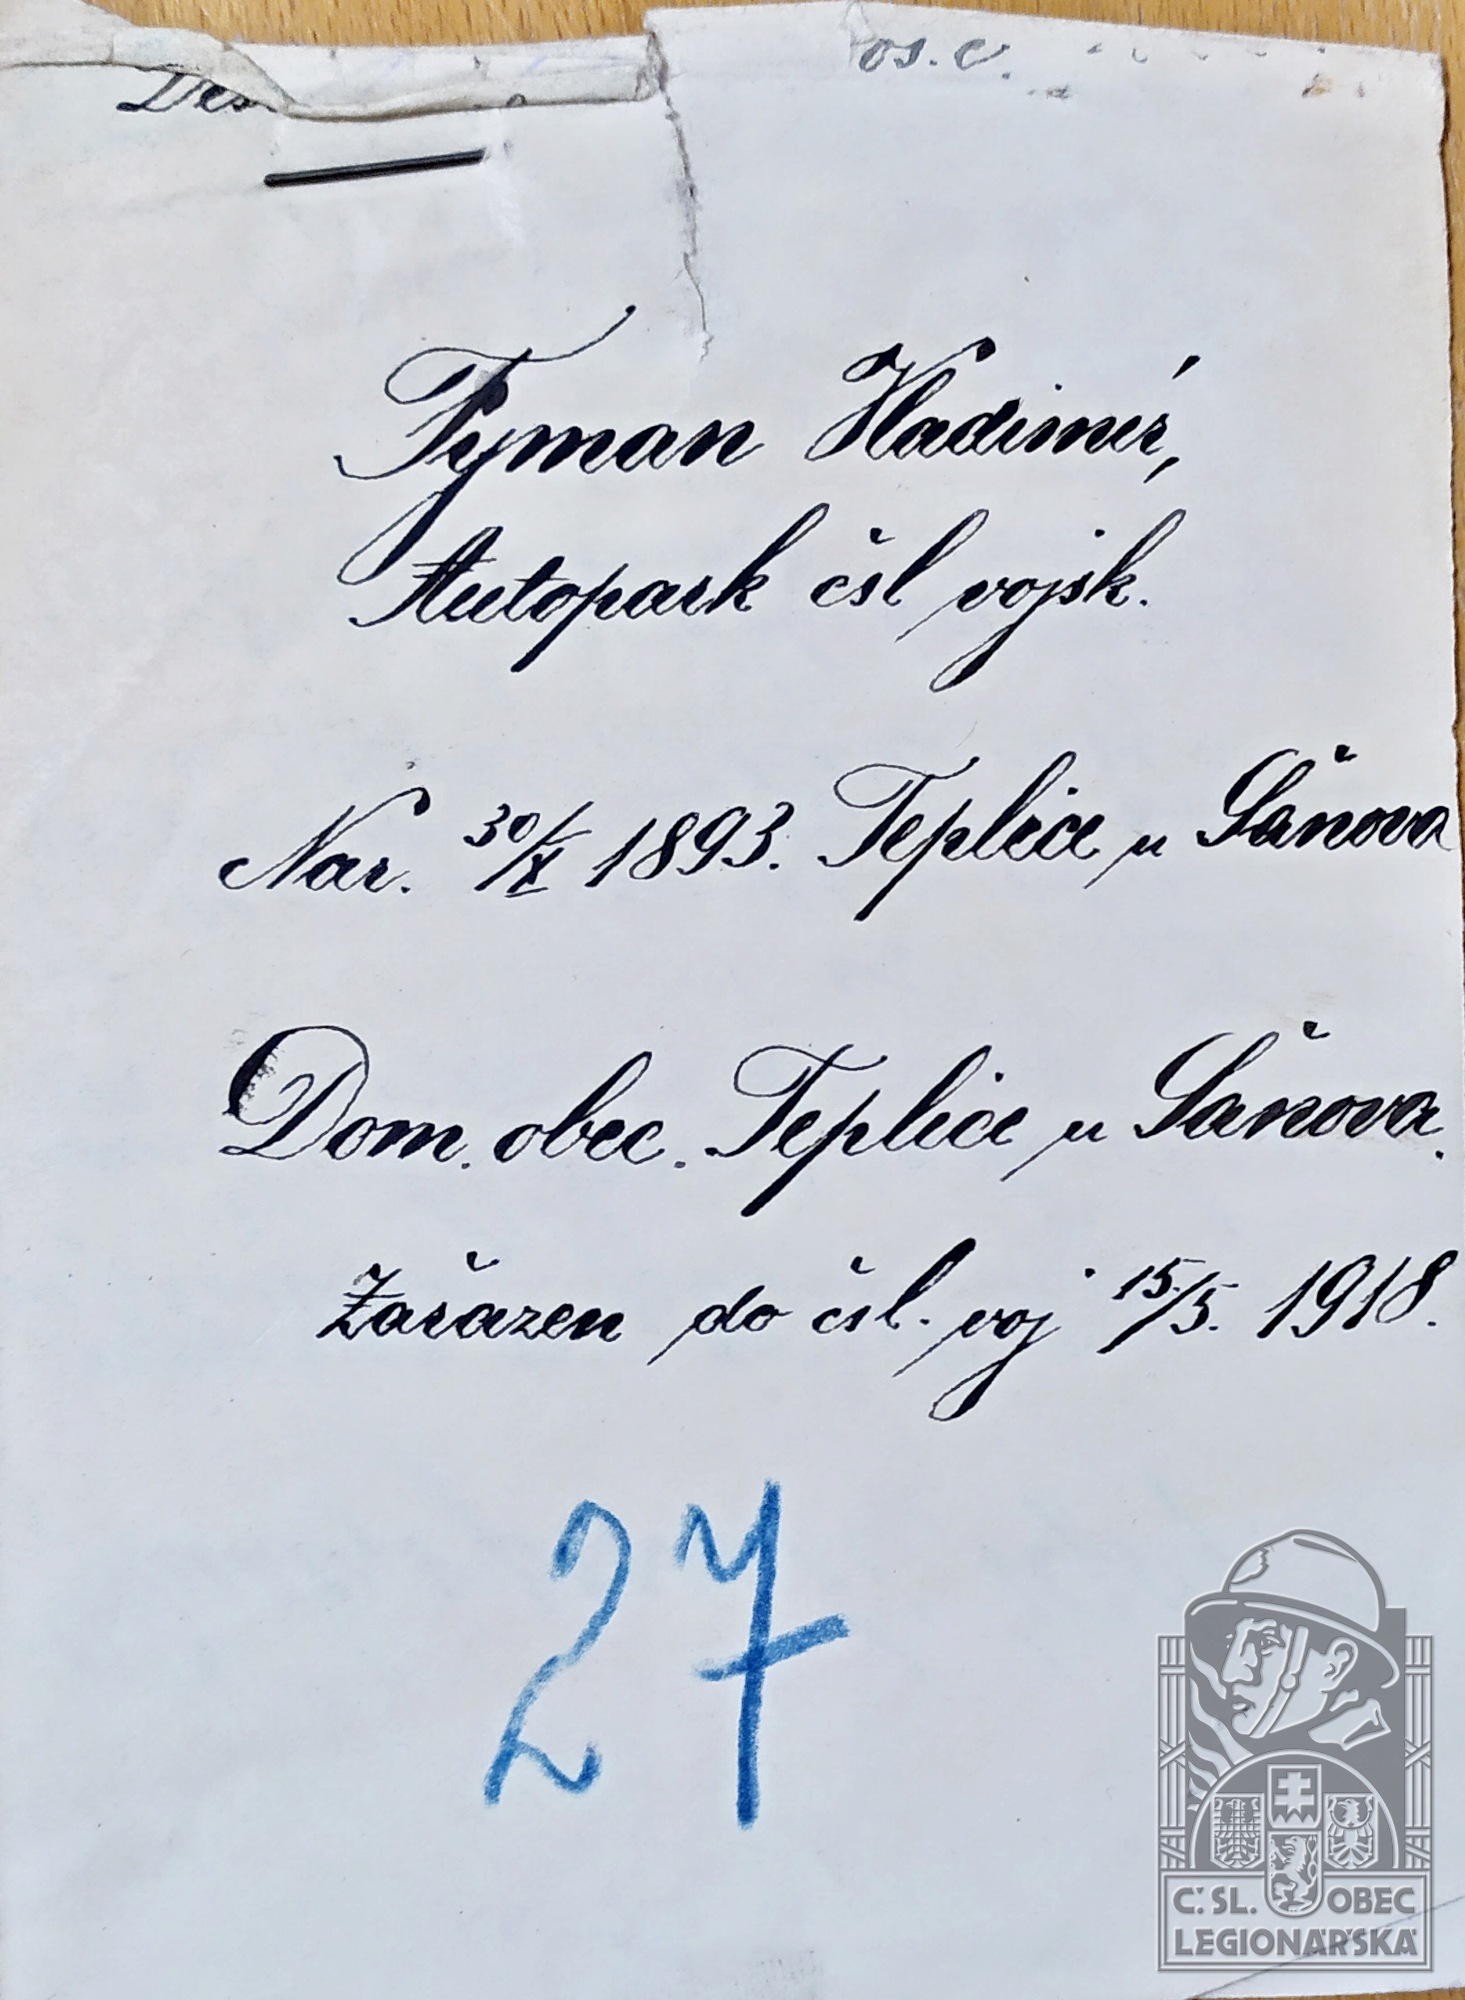 os. c.
Tyman Vladimír,
Autopark čsl vojsk.
Nar. 30/X 1893. Teplice u Šanova
Dom. obec. Teplice u Šanova.
Zařazen do čsl. voj 15./5. 1918.
27
Č.SL. OBEC
LEGIONÁŘSKÁ